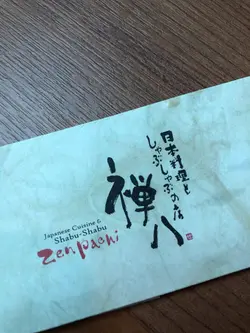 日本料理と
しゃぶしゃぶの店
禅八
Japanese Cuisine &
Shabu-Shabu
zenpachi